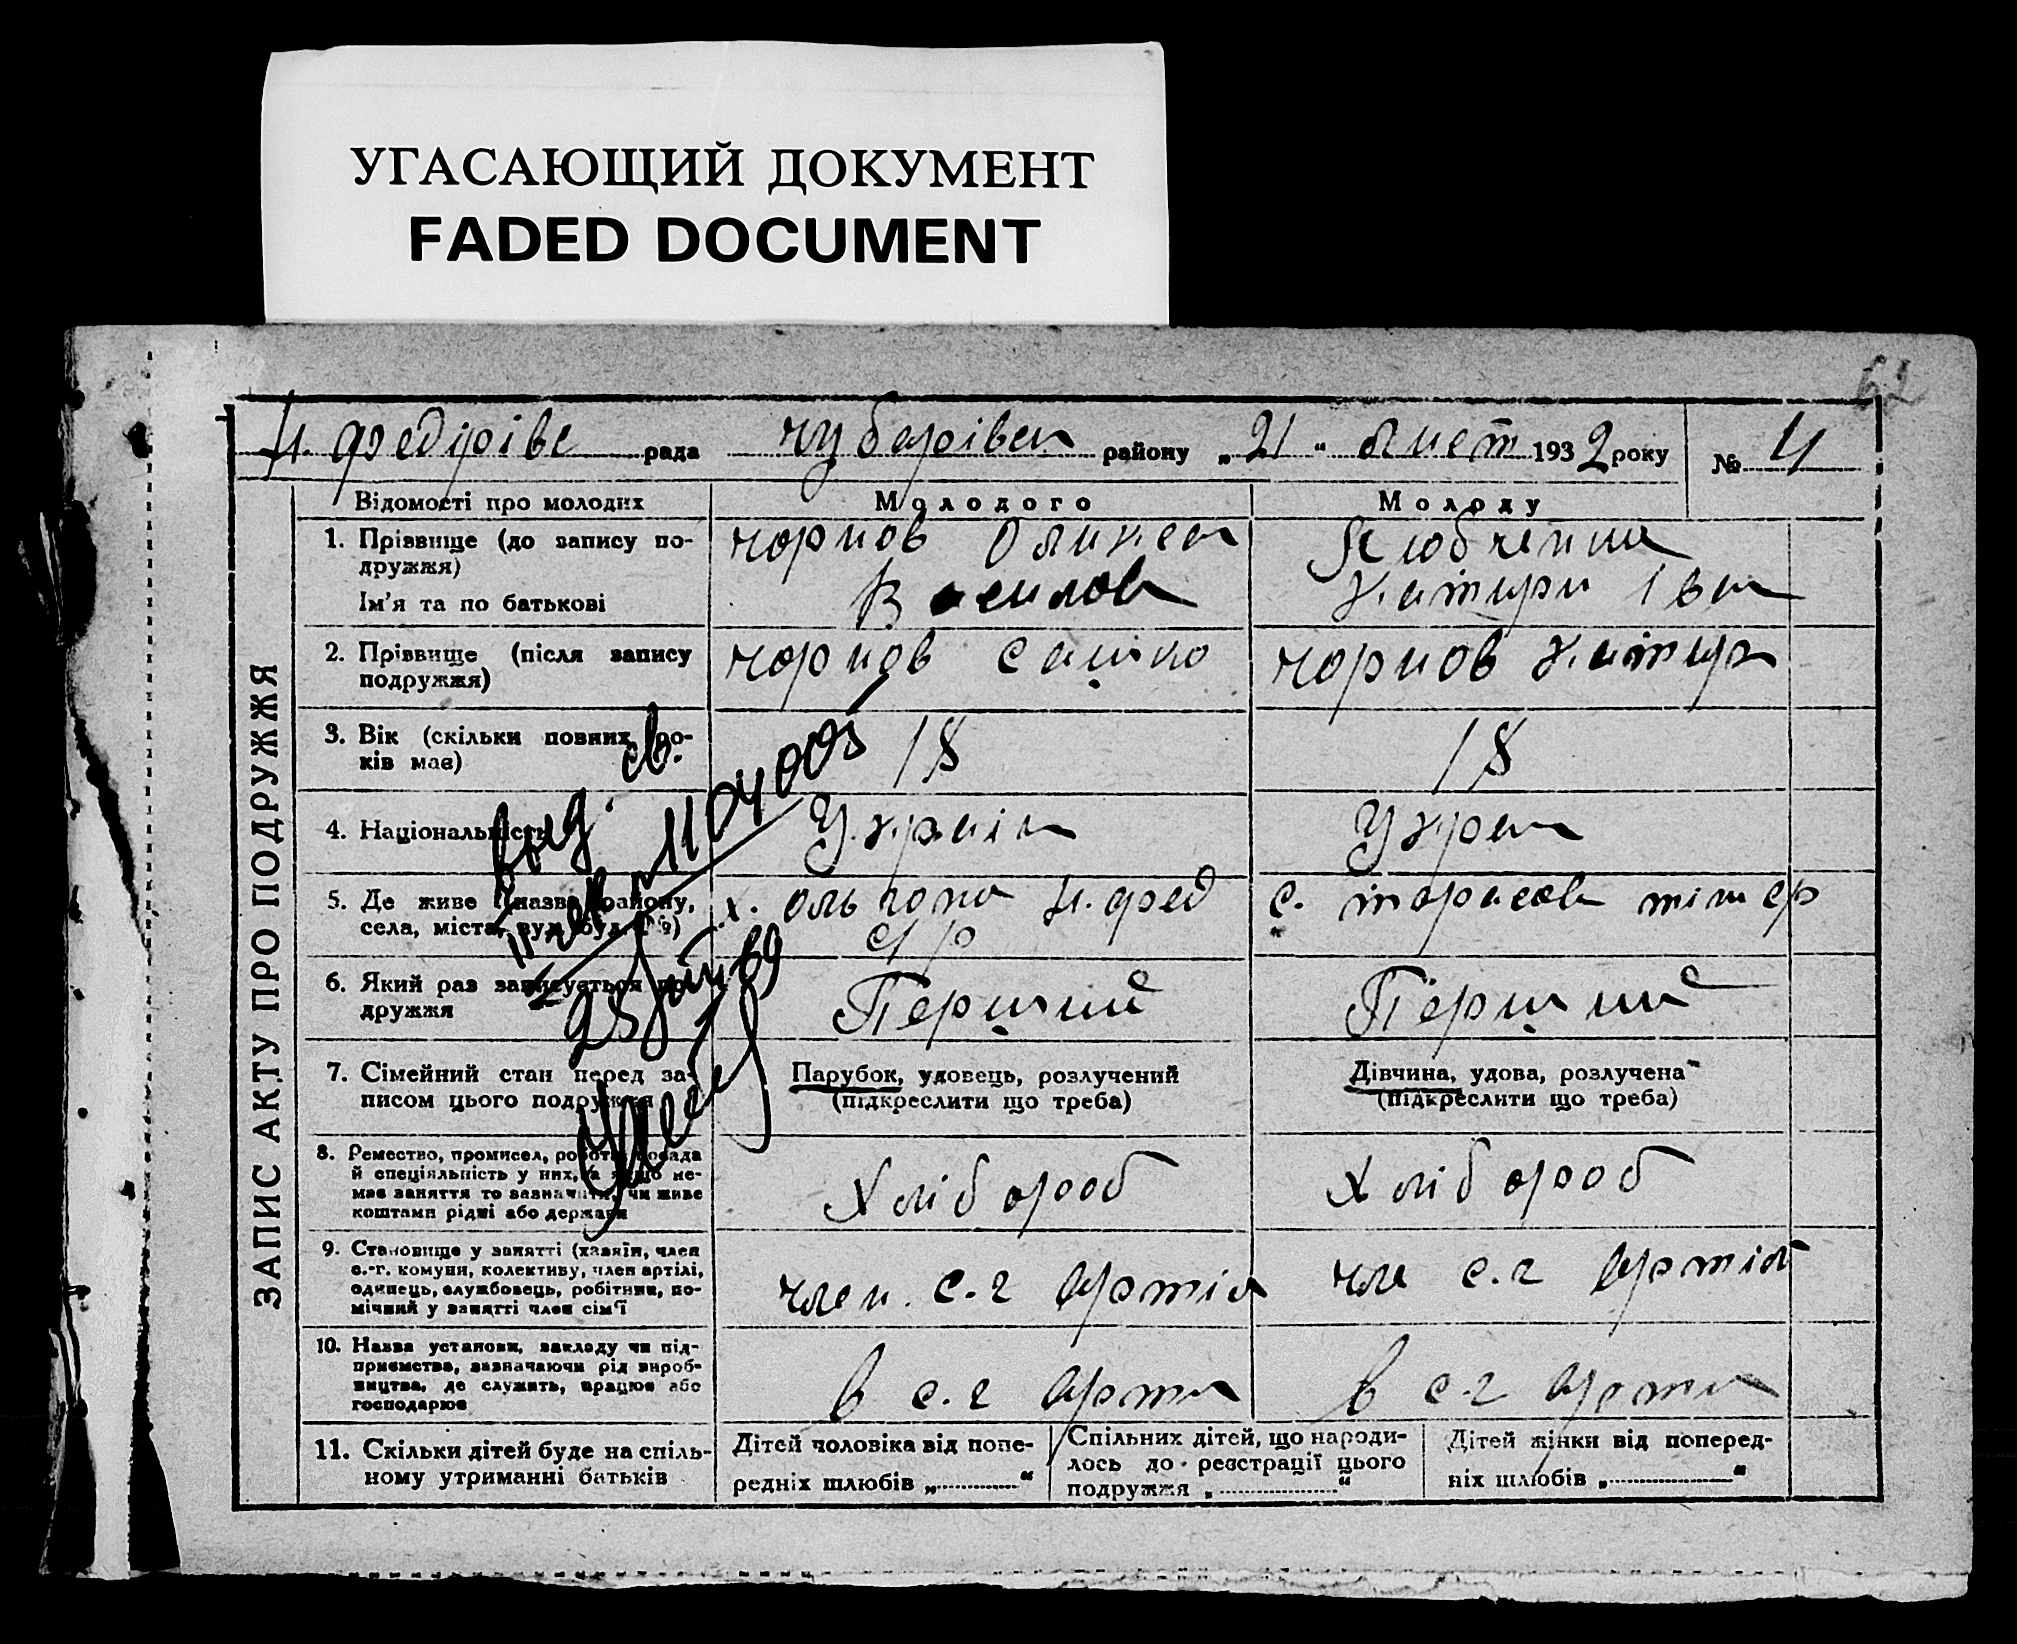 УГАСАЮЩИЙ ДОКУМЕНТ
FADED DOCUMENT
62
Н. федірівс рада чубарівск району „21“ лист 1932 року № 4
Відомості про молодих
Молодого
Молоду
1. Прізвище (до запису по-
дружжя)
Ім'я та по батькові
чорнов
Васильов
Любченко
Катири Іван
2. Прізвище (після запису
подружжя)
чорнов Сашко
чорнов Катир
3. Вік (скільки повних ро-
ків має)
18
18
4. Національність
Україн
Украи
5. Де живе (назва району,
села, міста, вул. буд. №)
х. Ольгопи Н. фед
с/р
с. тарасов
6. Який раз записується по-
дружжя
Перший
Перший
7. Сімейний стан перед за-
писом цього подружжя
Парубок, удовець, розлучений
(підкреслити що треба)
Дівчина, удова, розлучена
(підкреслити що треба)
8. Ремество, промисел, робота, посада
й спеціяльність у них, а якщо не-
має заняття то зазначити, чи живе
коштами рідні або держави
Хлібороб
Хлібороб
9. Становище у занятті (хазяїн, член
с.-г. комуни, колективу, член артілі,
одинець, службовець, робітник, по-
мічний у занятті член сім'ї
член. с.г артіл
чле с.г артіл
10. Назва установи, закладу чи під-
приємства, зазначаючи рід вироб-
ництва, де служить, працює або
господарює
в с.г арти
в с.г арти
11. Скільки дітей буде на спіль-
ному утриманні батьків
Дітей чоловіка від попе-
редніх шлюбів „ “
Спільних дітей, що народи-
лось до реєстрації цього
подружжя „ “
Дітей жінки від поперед-
ніх шлюбів „ “
ЗАПИС АКТУ ПРО ПОДРУЖЖЯ
выд. св.